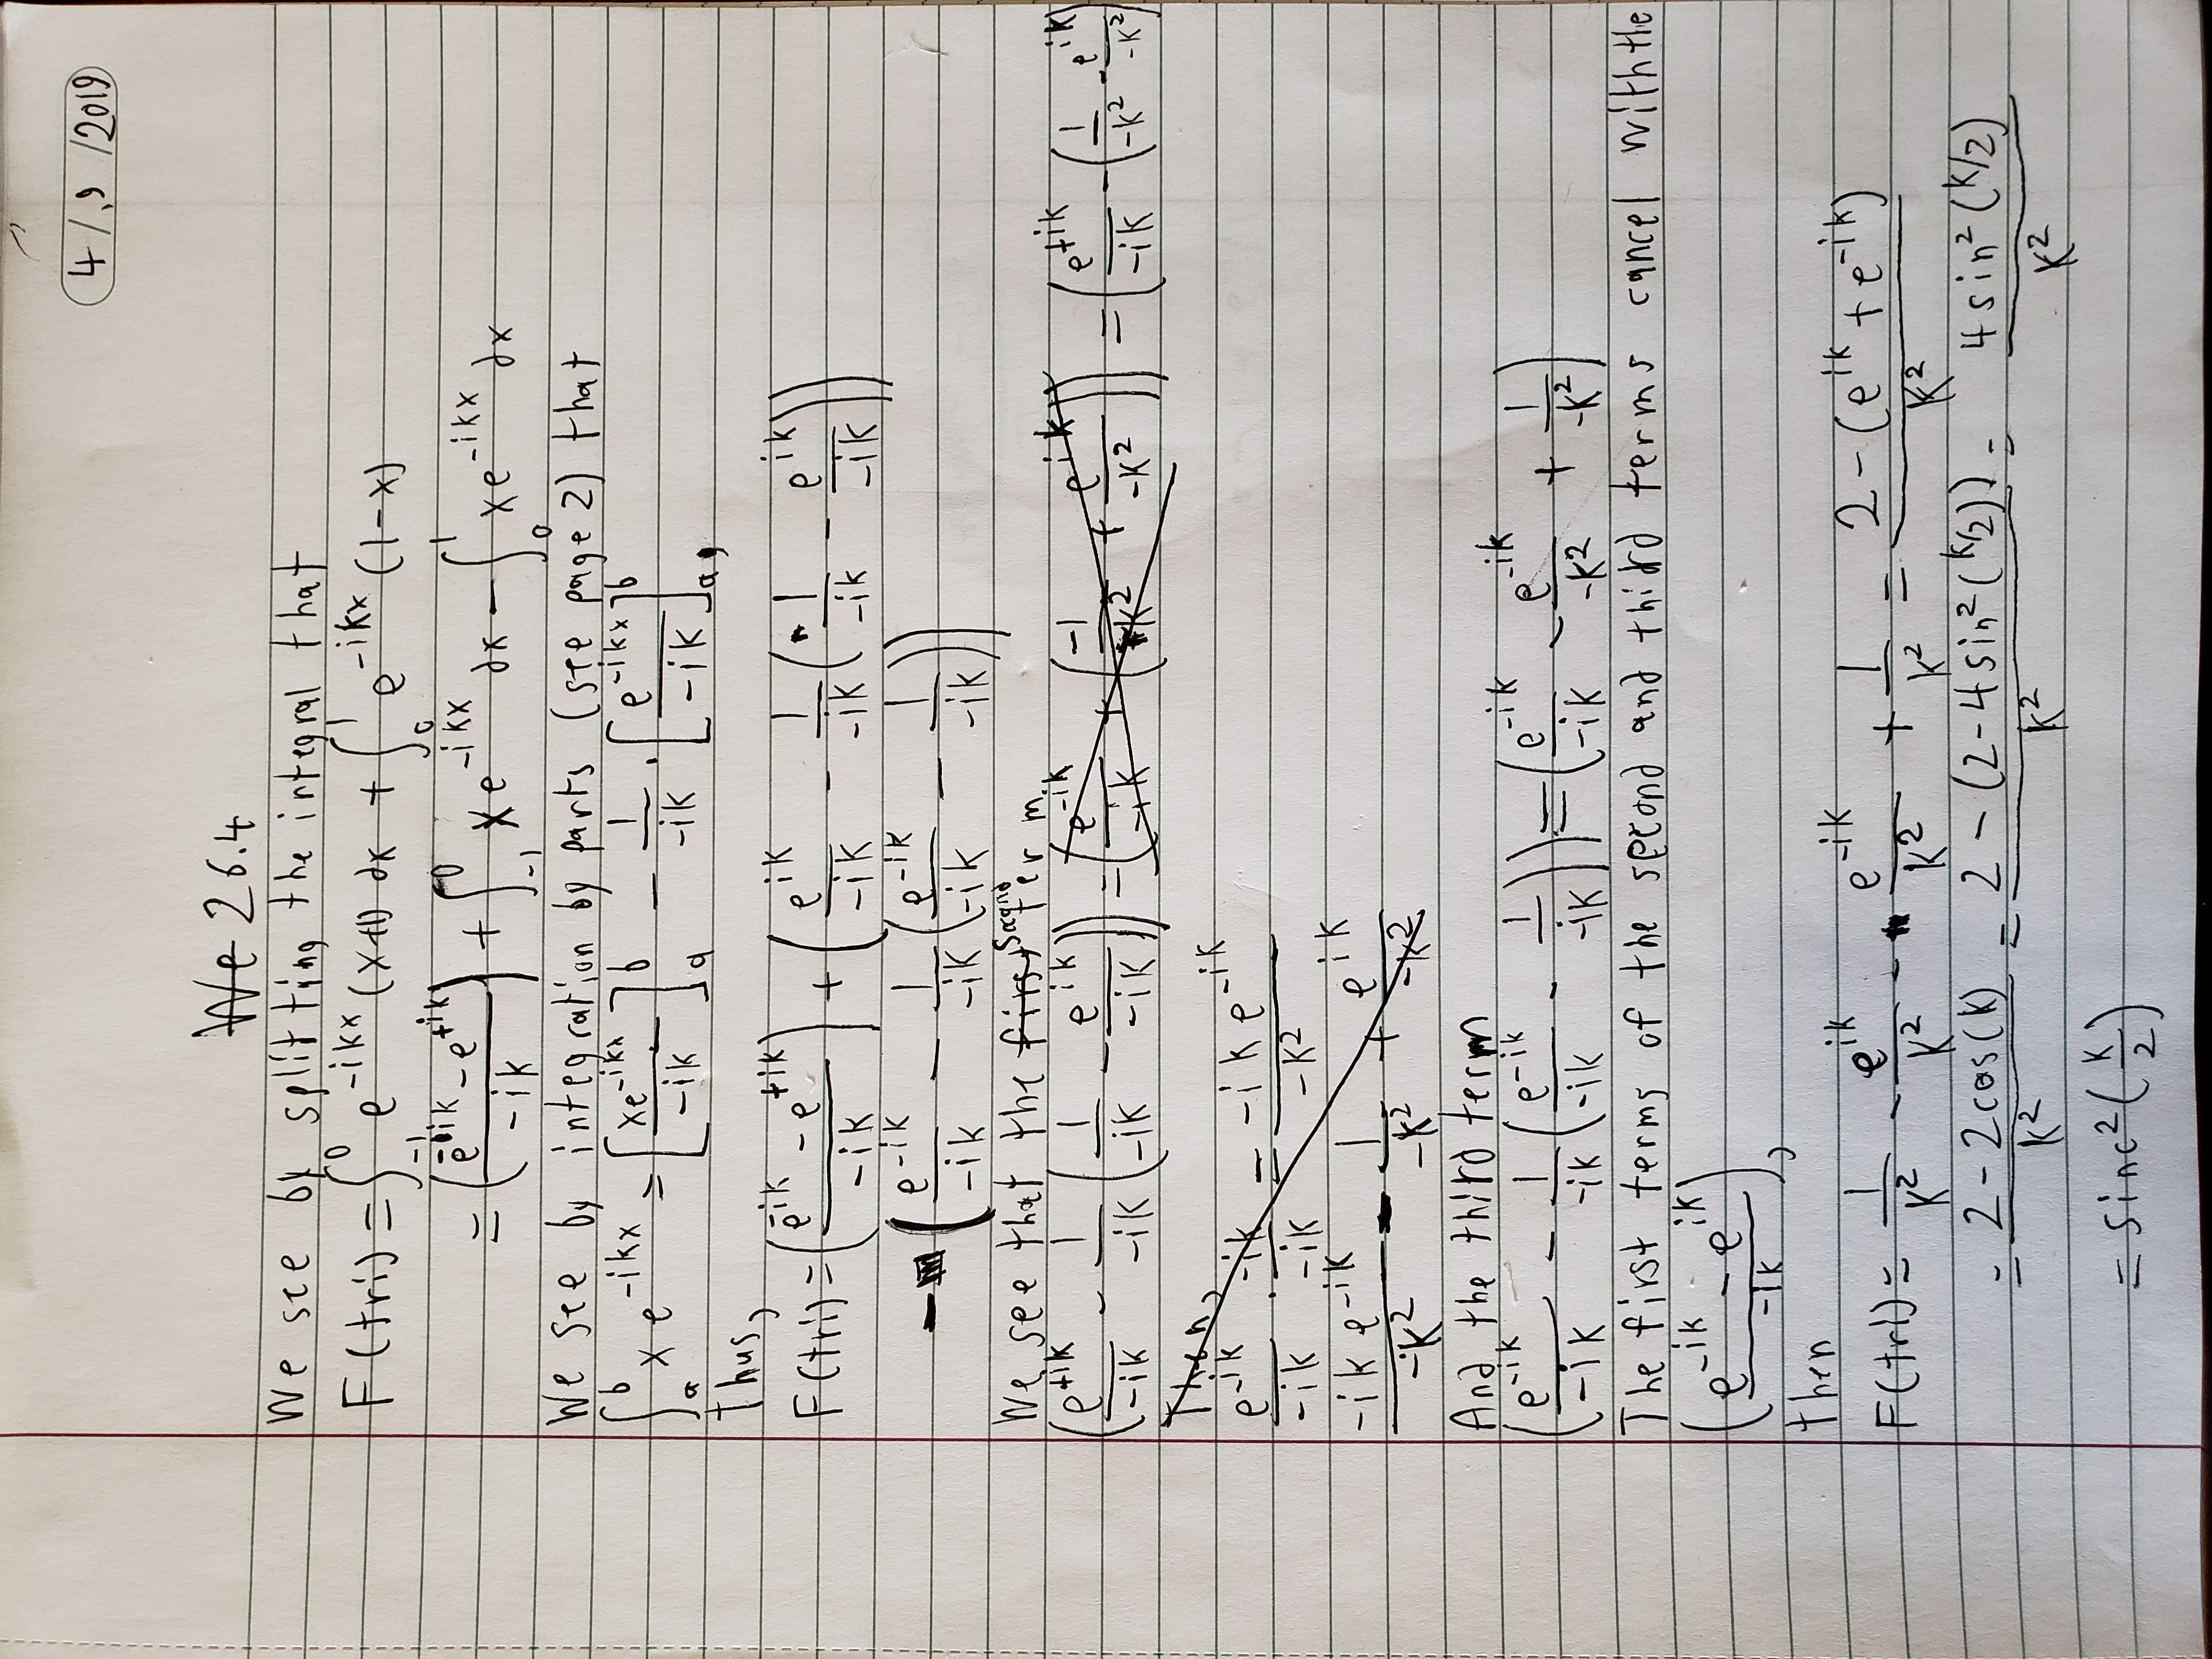 4/.9/2019
We 26.4
We see by splitting the integral that
F(tri) = ∫_{-1}^{0} e^{-ikx} (x+1) dx + ∫_{0}^{1} e^{-ikx} (1-x)
= ((e^{-ik} - e^{+ik})/(-ik)) + ∫_{-1}^{0} x e^{-ikx} dx - ∫_{0}^{1} x e^{-ikx} dx
We see by integration by parts (see page 2) that
∫_{a}^{b} x e^{-ikx} = [xe^{-ikx}/(-ik)]_{a}^{b} - 1/(-ik) · [e^{-ikx}/(-ik)]_{a}^{b},
Thus,
F(tri) = ((e^{-ik} - e^{+ik})/(-ik)) + (e^{ik}/(-ik) - 1/(-ik) (1/(-ik) - e^{ik}/(-ik)))
- (e^{-ik}/(-ik) - 1/(-ik) (e^{-ik}/(-ik) - 1/(-ik)))
We see that the first second term
(e^{+ik}/(-ik) - 1/(-ik) (1/(-ik) - e^{ik}/(-ik))) = (e^{-ik}/(-ik) + (-1/(-k²) + e^{ik}/(-k²))) = (e^{+ik}/(-ik) - (1/(-k²) - e^{ik}/(-k²))
Then,
e^{-ik}/(-ik) · -ik/(-ik) = -ik e^{-ik}/(-k²)
-ik e^{-ik}/(-k²) - 1/(-k²) + e^{ik}/(-k²)
And the third term
(e^{-ik}/(-ik) - 1/(-ik) (e^{-ik}/(-ik) - 1/(-ik))) = (e^{-ik}/(-ik) - e^{-ik}/(-k²) + 1/(-k²))
The first terms of the second and third terms cancel with the
((e^{-ik} - e^{ik})/(-ik)),
then
F(tri) = 1/k² - e^{ik}/k² - e^{-ik}/k² + 1/k² = (2 - (e^{ik} + e^{-ik}))/k²
= (2 - 2cos(k))/k² = (2 - (2 - 4sin²(k/2)))/k² = 4sin²(k/2)/k²
= sinc²(k/2)